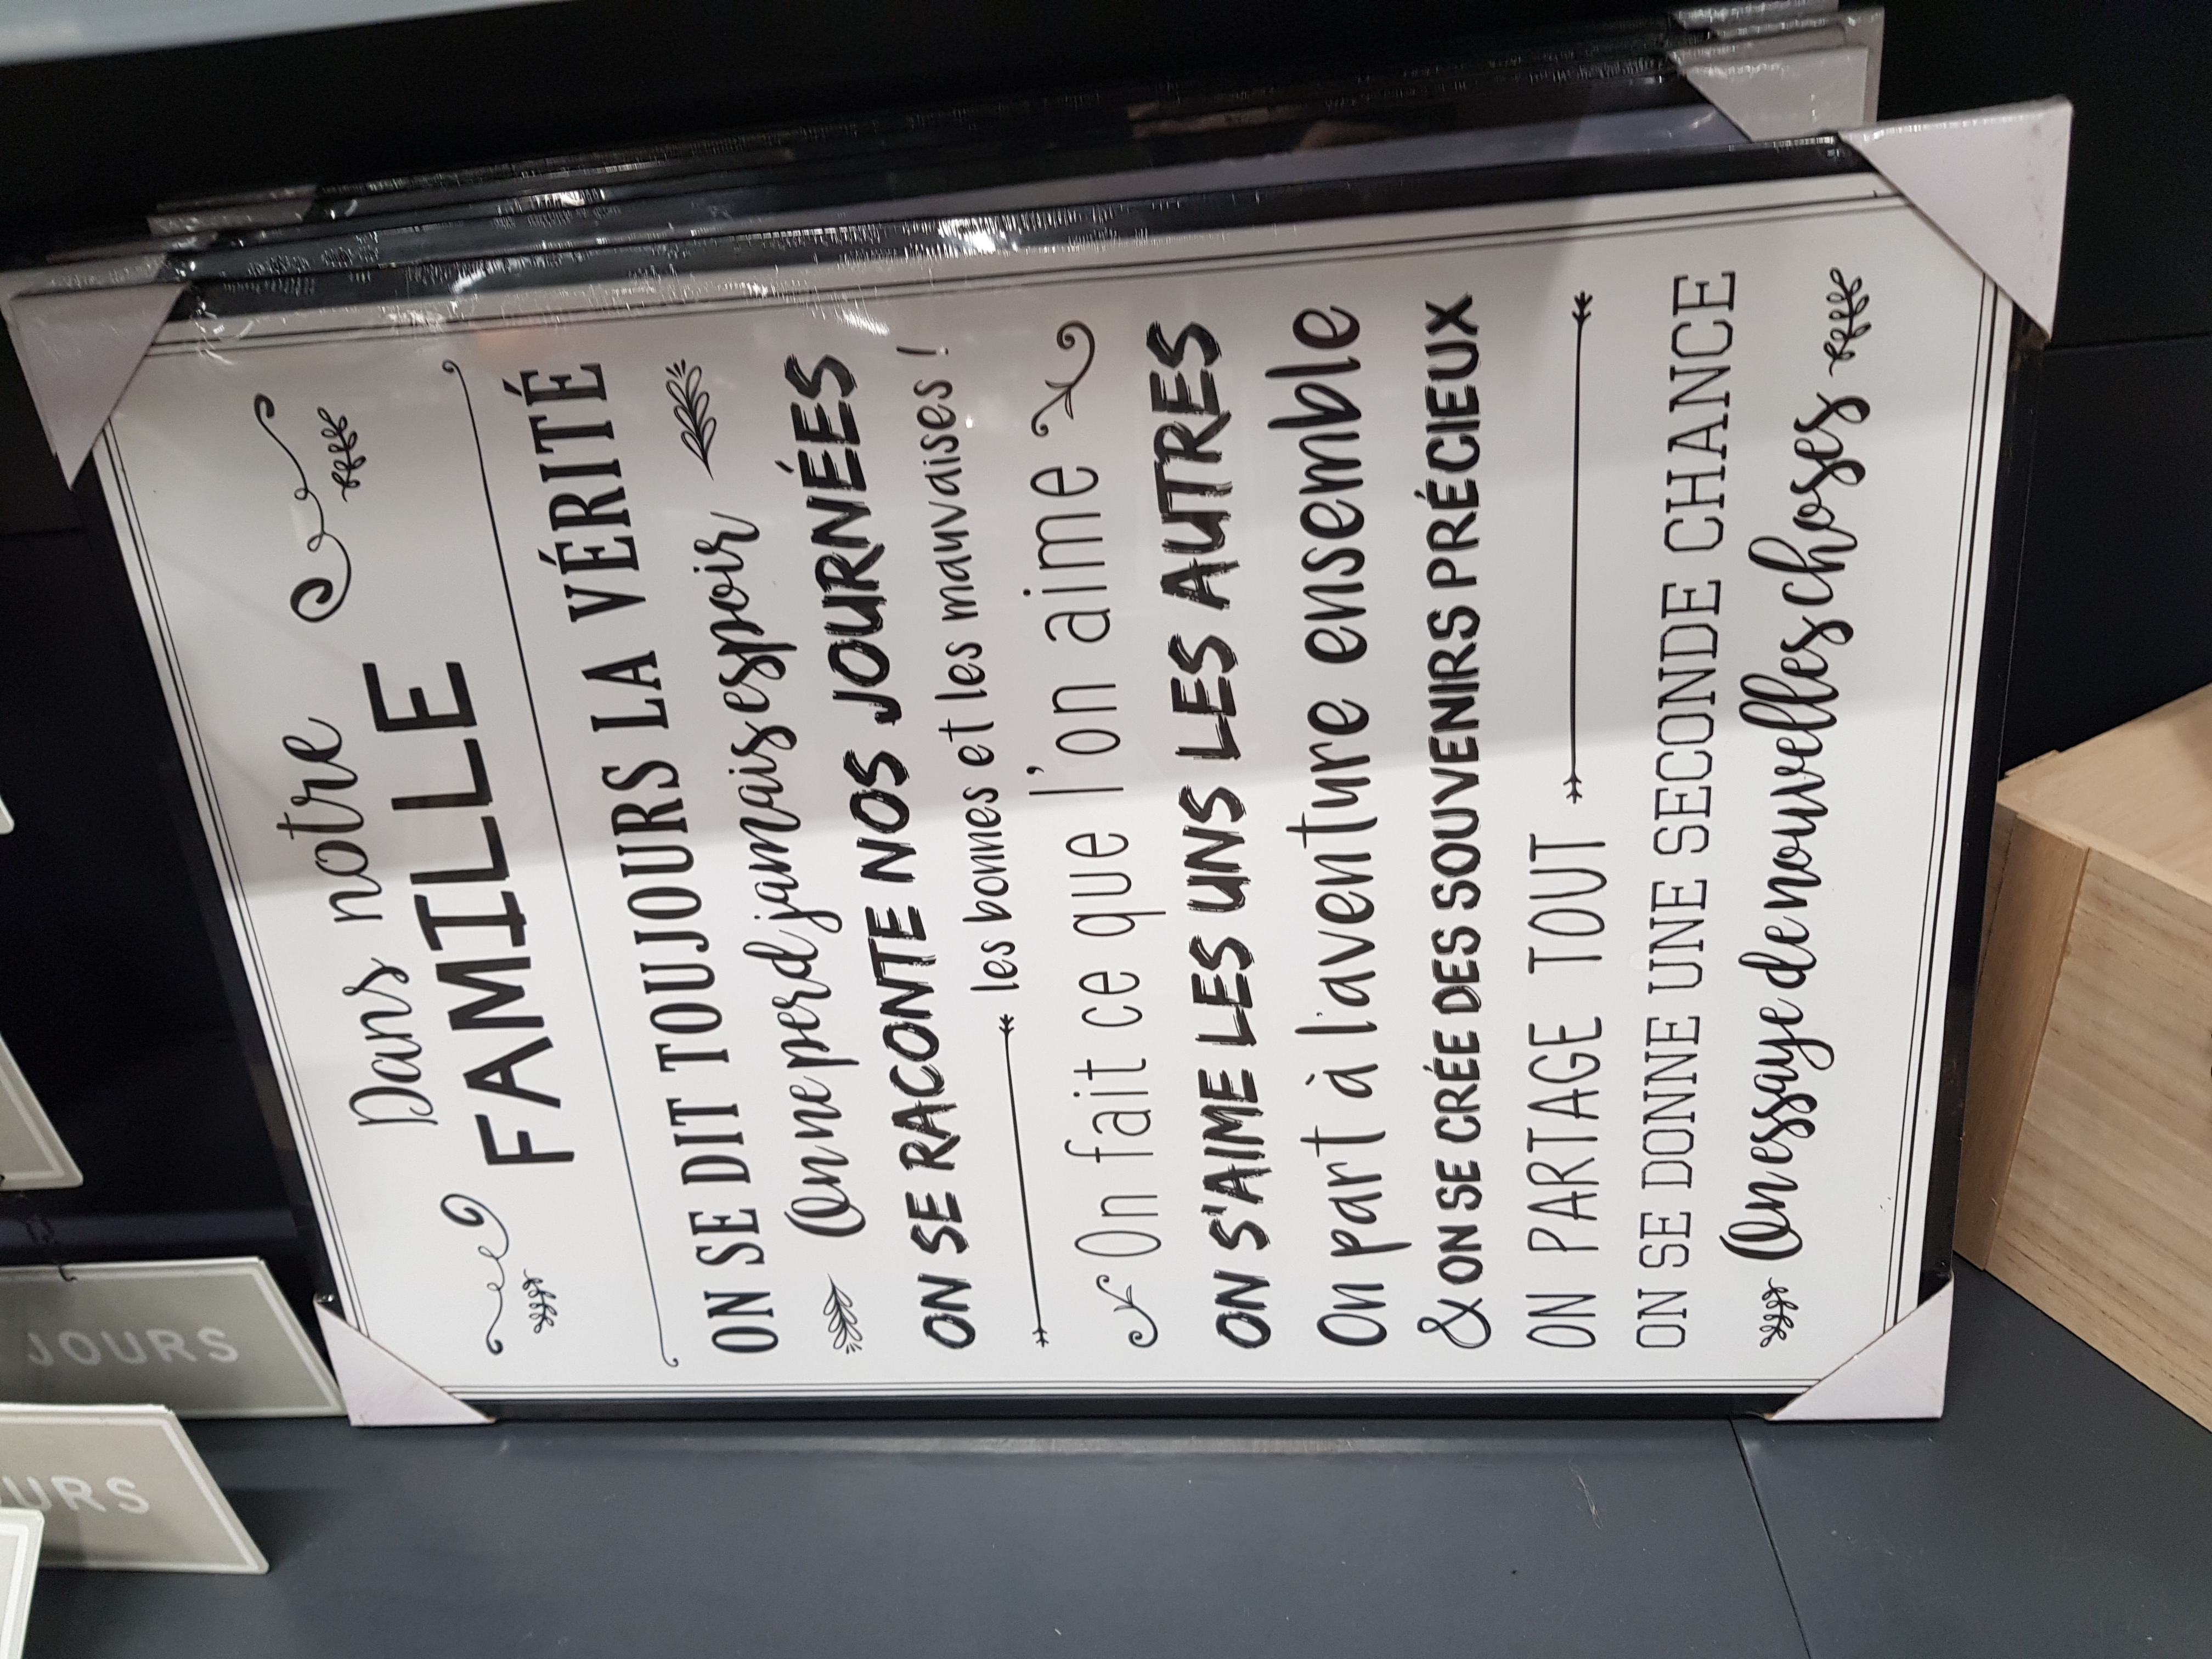 Dans notre
FAMILLE
ON SE DIT TOUJOURS LA VÉRITÉ
On ne perd jamais espoir
ON SE RACONTE NOS JOURNÉES
les bonnes et les mauvaises !
On fait ce que l'on aime
ON S'AIME LES UNS LES AUTRES
On part à l'aventure ensemble
& ON SE CRÉE DES SOUVENIRS PRÉCIEUX
ON PARTAGE TOUT
ON SE DONNE UNE SECONDE CHANCE
On essaye de nouvelles choses
JOURS
URS